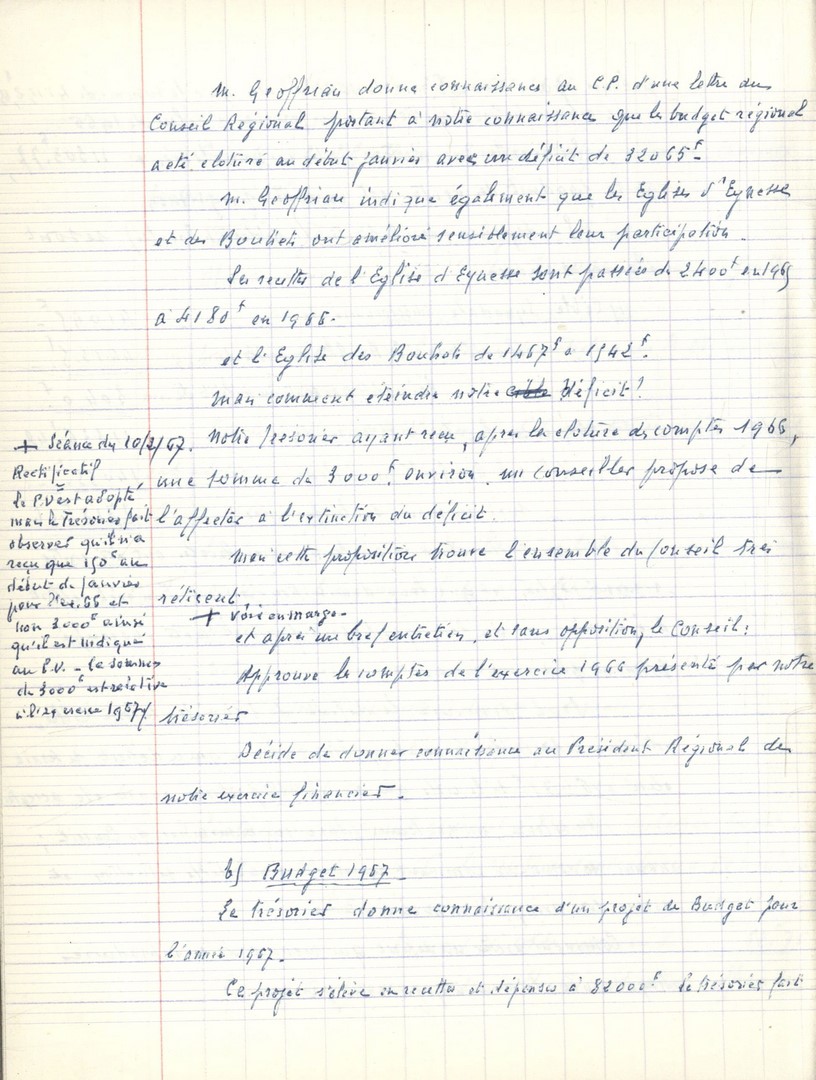 M. Geoffriau donne connaissance au C.P. d'une lettre du
Conseil Régional portant à notre connaissance que le budget régional
a été cloturé au début janvier avec un déficit de 32065f.
M. Geoffriau indique également que les Eglises d'Eynesse
et des Bouhets ont amélioré sensiblement leur participation.
Les recettes de l'Eglise d'Eynesse sont passées de 2400f en 1965
à 4180f en 1966.
et l'Eglise des Bouhets de 1467f à 1542f.
Mais comment éteindre notre déficit?
Notre Trésorier ayant reçu, après la cloture des comptes 1966,
une somme de 3000f. environ, un conseiller propose de
l'affecter à l'extinction du déficit.
Mais cette proposition trouve l'ensemble du Conseil très
réticent
+ voir en marge.
et après un bref entretien, et sans opposition, le Conseil:
Approuve les comptes de l'exercice 1966 présenté par notre
trésorier
Décide de donner connaissance au Président Régional de
notre exercice financier.
+ Séance du 10/2/67.
Rectificatif
le P.V est adopté,
mais le Trésorier fait
observer qu'il n'a
reçu que 150f au
début de Janvier
pour 66 et
non 3000f ainsi
qu'il est indiqué
au P.V. - la somme
de 3000f est relative
à l'exercice 1967
b) Budget 1967
Le trésorier donne connaissance d'un projet de Budget pour
l'année 1967.
Ce projet s'élève en recettes et dépenses à 82000f. Le trésorier fait